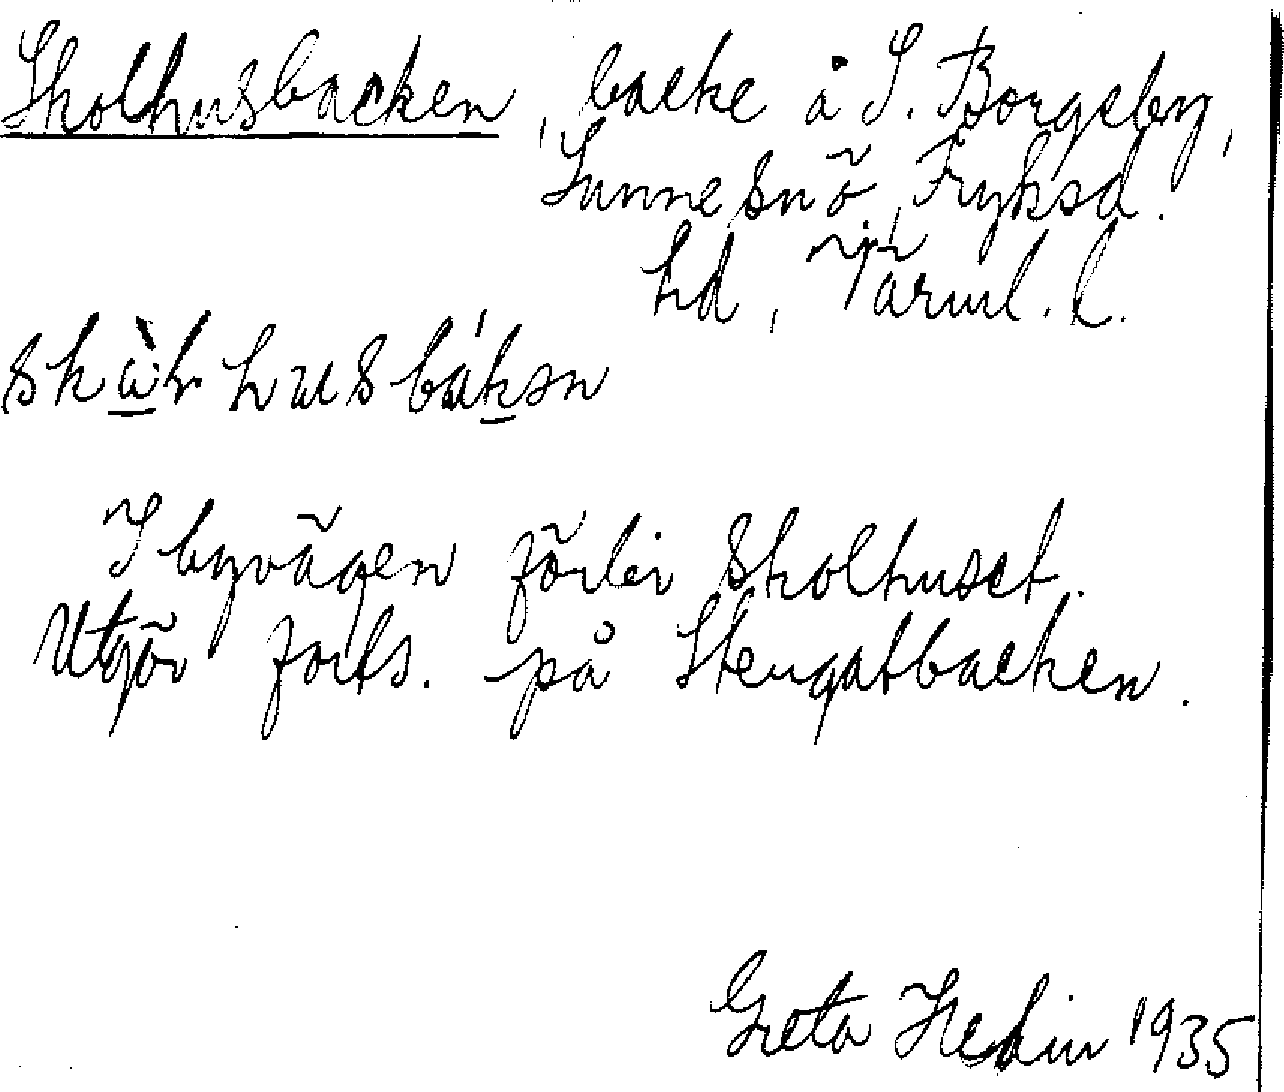 Skolhusbacken, backe å S. Borgeby,
Sunne snö, Fryksd.
hd, Värml. l.
I byvägen förbi skolhuset.
Utgör forts. på Stengatbacken.
Greta Hedin 1935